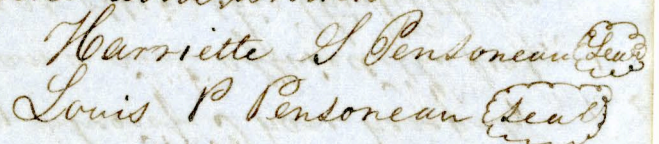 Harriette S Pensoneau Seal
Louis P Pensoneau Seal